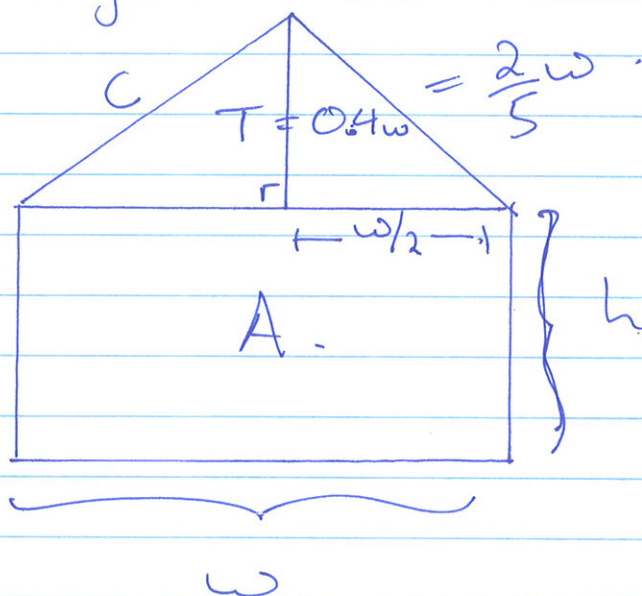 C
T = 0.4w = 2/5 w
w/2
A.
h
w